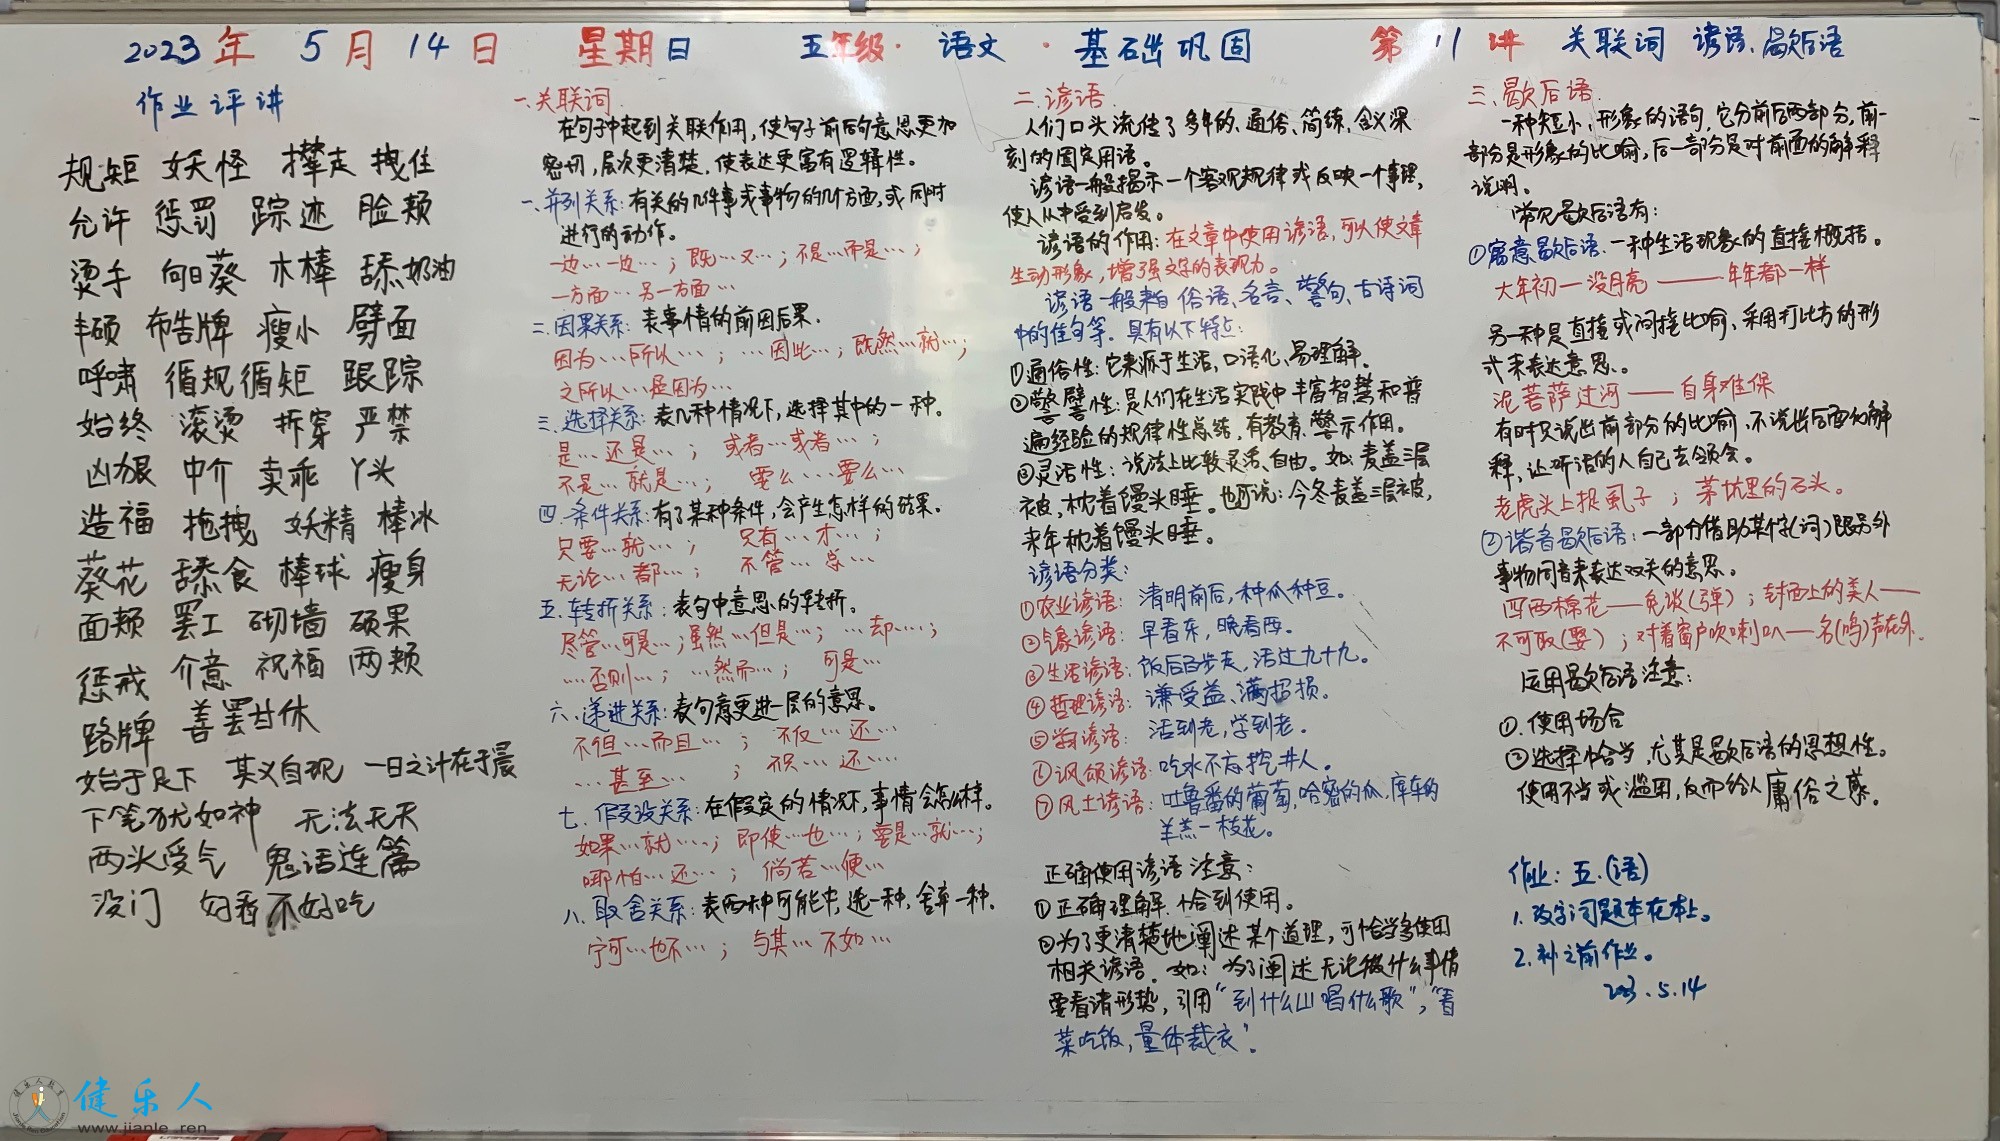 2023年 5月14日 星期日 五年级·语文·基础巩固 第11讲 关联词 谚语、歇后语
作业评讲
规矩 妖怪 撵走 拽住
允许 惩罚 踪迹 脸颊
烫手 向日葵 木棒 舔奶油
丰硕 布告牌 瘦小 劈面
呼啸 循规循矩 跟踪
始终 滚烫 拆穿 严禁
凶狠 中介 卖乖 丫头
造福 拖拽 妖精 棒冰
葵花 舔食 棒球 瘦身
面颊 罢工 砌墙 硕果
惩戒 介意 祝福 两颊
路牌 善罢甘休
始于足下 其义自现 一日之计在于晨
下笔犹如神 无法无天
两头受气 鬼话连篇
没门 好看不好吃
一、关联词
在句子中起到关联作用,使句子前后句意思更加
密切,层次更清楚,使表达更富有逻辑性。
一、并列关系:有关的几件事或事物的几个方面,或同时
进行的动作。
一边…一边…;既…又…;不是…而是…;
一方面…另一方面…
二、因果关系:表事情的前因后果.
因为…所以…;…因此…;既然…就…;
之所以…是因为…
三、选择关系:表几种情况下,选择其中的一种.
是…还是…; 或者…或者…;
不是…就是…; 要么…要么…
四、条件关系:有了某种条件,会产生怎样的结果.
只要…就…; 只有…才…;
无论…都…; 不管…总…
五、转折关系:表句中意思的转折.
尽管…可是…;虽然…但是…; …却…;
…否则…; …然而…; 可是…
六、递进关系:表句意更进一层的意思。
不但…而且…; 不仅…还…
…甚至…; 不只…还…
七、假设关系:在假定的情况下,事情会怎么样.
如果…就…;即使…也…;要是…就…;
哪怕…还…;倘若…便…
八、取舍关系:表两种可能中,选一种,舍弃一种.
宁可…也不…; 与其…不如…
二、谚语
人们口头流传了多年的、通俗、简练、含义深
刻的固定用语。
谚语一般揭示一个客观规律或反映一个事理,
使人从中受到启发。
谚语的作用:在文章中使用谚语,可以使文章
生动形象,增强文字的表现力。
谚语一般来自俗语、名言、警句、古诗词
中的佳句等.具有以下特点:
①通俗性:它来源于生活,口语化、易理解.
②警譬性:是人们在生活实践中丰富智慧和普
遍经验的规律性总结,有教育、警示作用。
③灵活性:说法上比较灵活、自由.如:麦盖三层
被,枕着馒头睡.也可说:今冬麦盖三层被,
来年枕着馒头睡。
谚语分类:
①农业谚语:清明前后,种瓜种豆。
②气象谚语:早看东,晚看西。
③生活谚语:饭后百步走,活过九十九。
④哲理谚语:谦受益、满招损。
⑤学习谚语:活到老,学到老。
⑥讽颂谚语:吃水不忘挖井人。
⑦风土谚语:吐鲁番的葡萄,哈密的瓜,库车的
羊羔一枝花。
正确使用谚语注意:
①正确理解.恰到使用。
②为了更清楚地阐述某个道理,可恰当多使用
相关谚语.如:为了阐述无论做什么事情
要看清形势,引用“到什么山唱什么歌”,“看
菜吃饭,量体裁衣”.
三、歇后语
一种短小、形象的语句,它分前后两部分,前一
部分是形象的比喻,后一部分是对前面的解释
说明。
常见歇后语有:
①寓意歇后语:一种生活现象的直接概括。
大年初一没月亮——年年都一样
另一种是直接或间接比喻,采用打比方的形
式来表达意思。
泥菩萨过河——自身难保
有时只说出前部分的比喻,不说出后面的解
释,让听话的人自己去领会。
老虎头上捉虱子;茅坑里的石头。
②谐音歇后语:一部分借助某个字(词)跟另外
事物同音来表达双关的意思。
四两棉花——免谈(弹);封面上的美人——
不可取(娶);对着窗户吹喇叭——名(鸣)声在外.
运用歇后语注意:
①.使用场合
②选择恰当,尤其是歇后语的思想性。
使用不当或滥用,反而给人庸俗之感。
作业:五.(语)
1.改字词题本在本上。
2.补之前作业。
2023.5.14
健乐人
www.jianle.ren